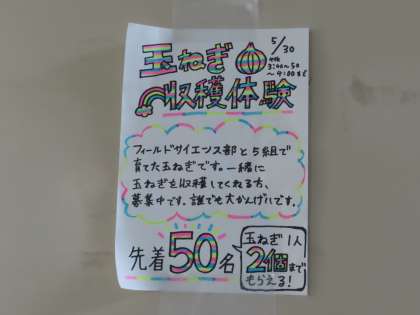 玉ねぎ
収穫体験
5/30
フィールドサイエンス部と5組で
育てた玉ねぎです。一緒に
玉ねぎを収穫してくれる方、
募集中です。誰でも大かんげいです。
先着50名
玉ねぎ1人
2個まで
もらえる!